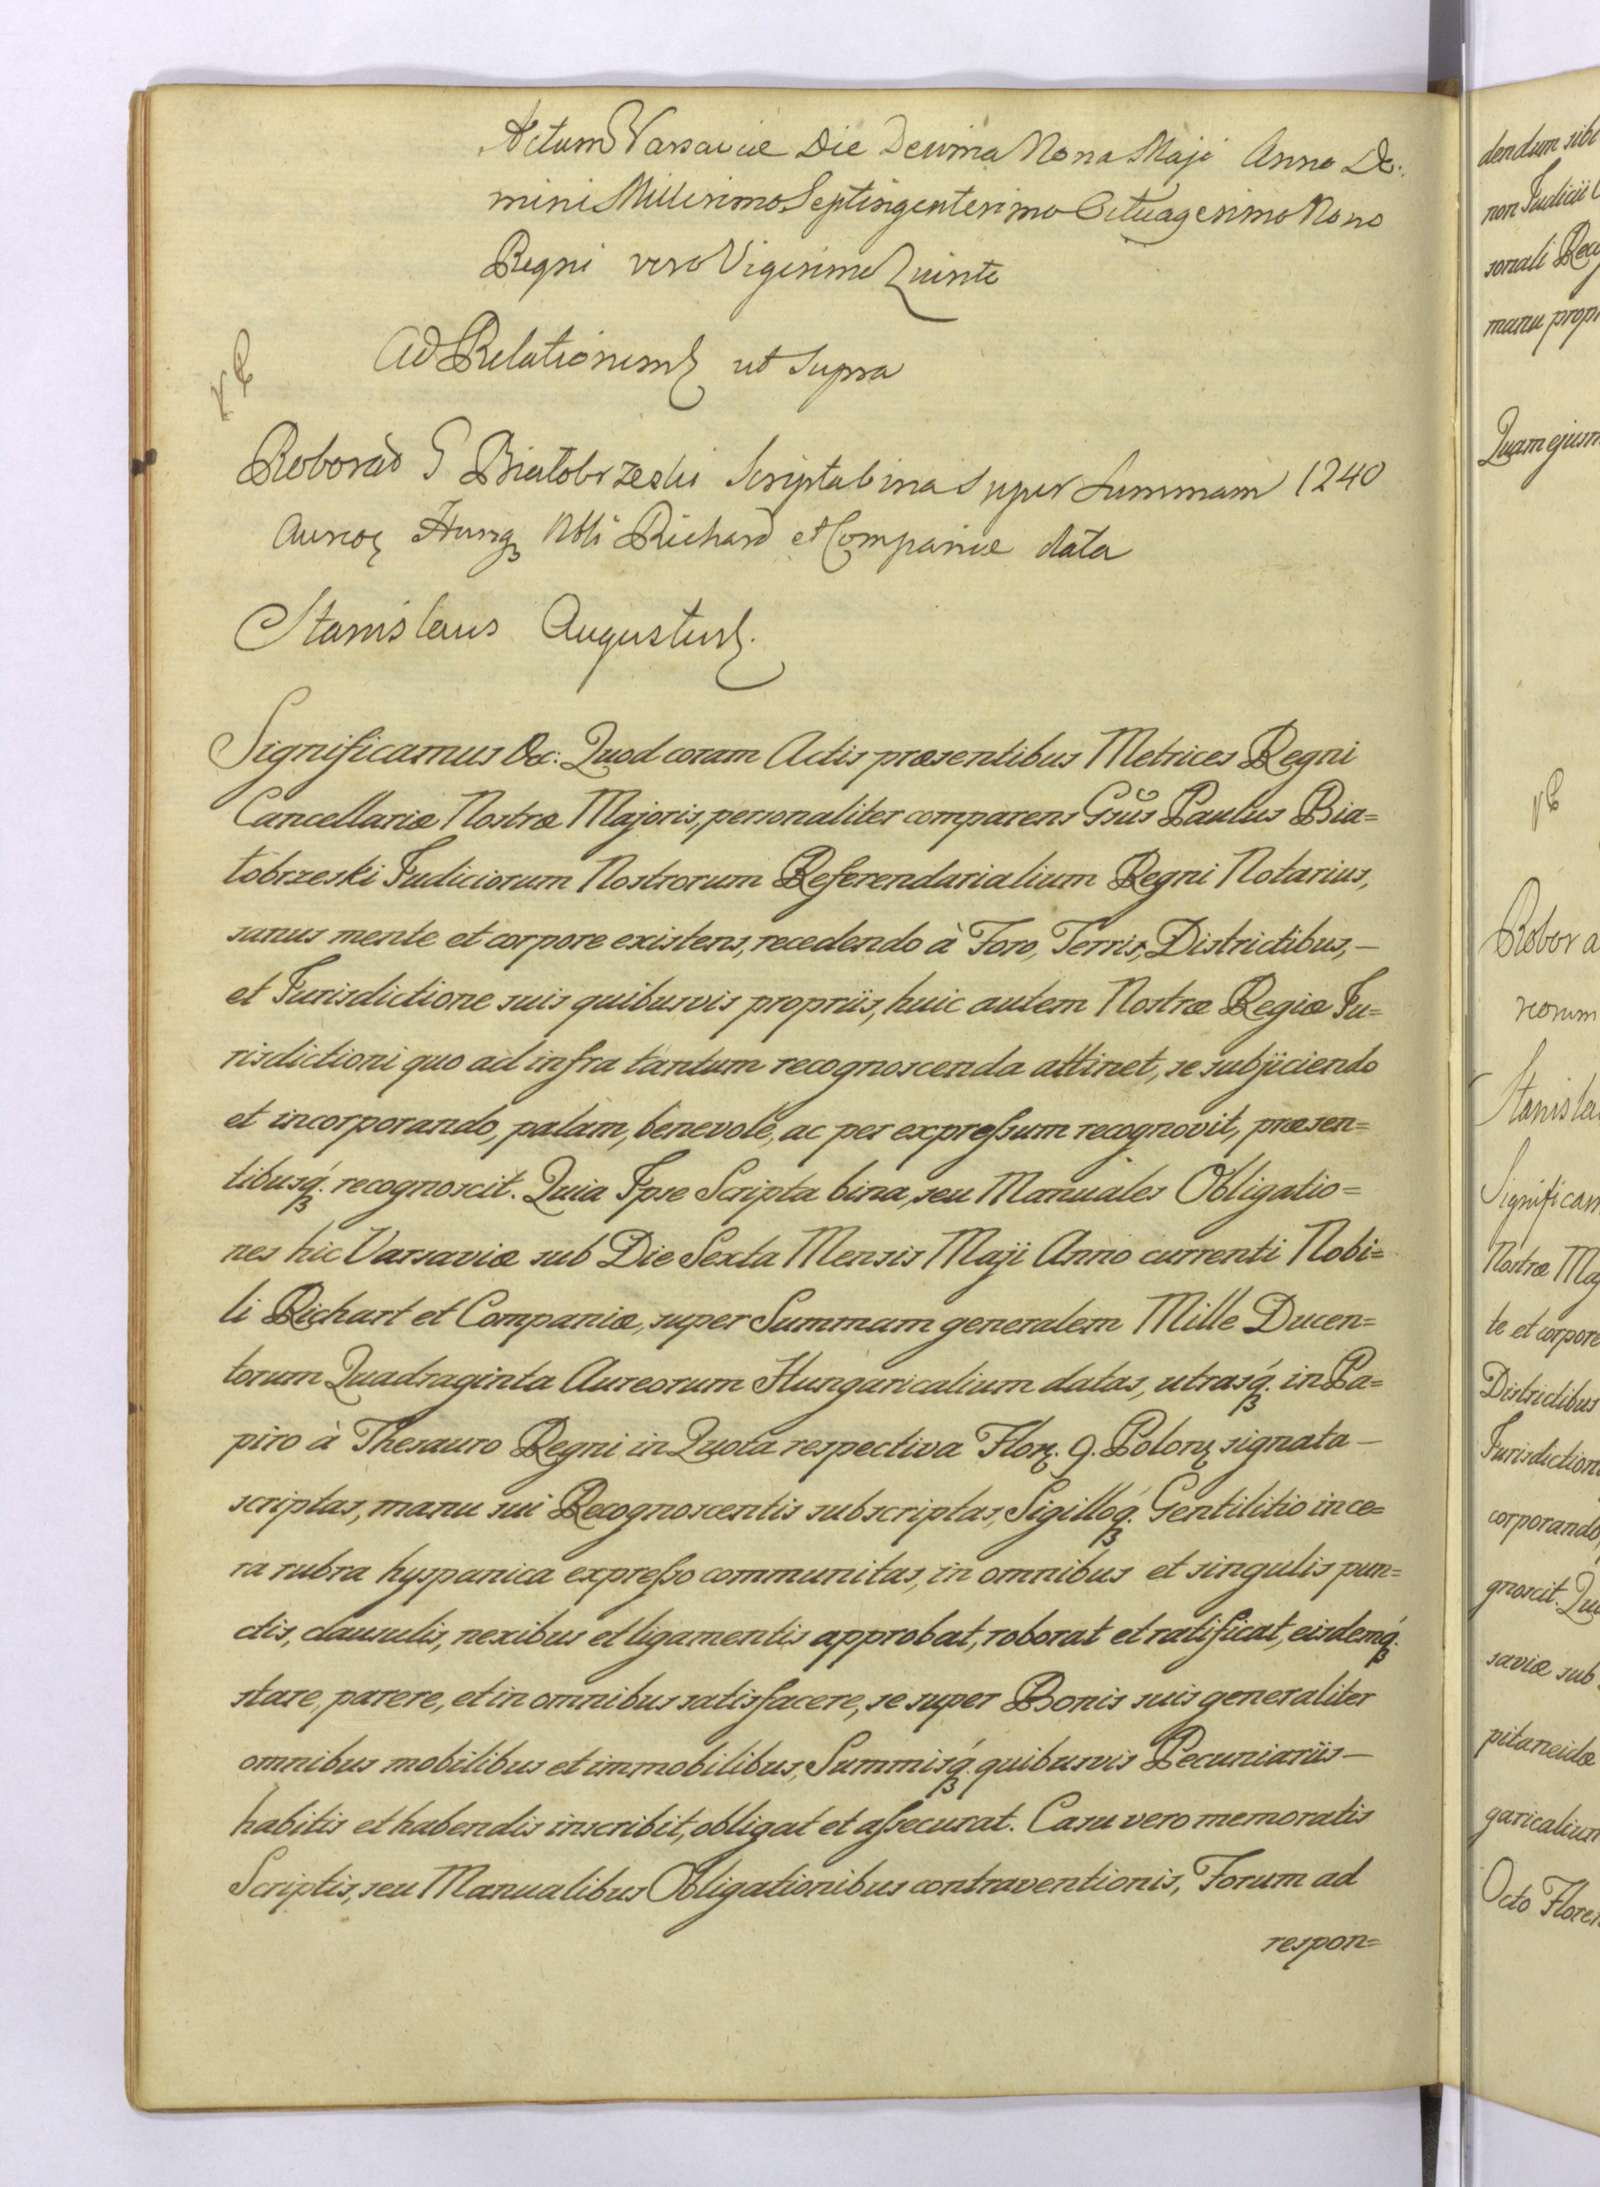 Actum Varsaviæ Die Decima Nona Maji Anno Do:
mini Millesimo Septingentesimo Octuagesimo Nono
Regni vero Vigesimo Quinto
Ad Relationem ut supra
Roborao G Białobrzeski Scripta bina super Summam 1240
Aureoꝝ Hungꝫ Nbli Richard et Companiæ data
Stanislaus Augustus.
Significamus &c: Quod coram Actis præsentibus Metrices Regni
Cancellariæ Nostræ Majoris, personaliter comparens Gsus Paulus Bia=
łobrzeski Judiciorum Nostrorum Referendarialium Regni Notarius,
sanus mente et corpore existens, recedendo à Foro, Terris, Districtibus, —
et Jurisdictione suis quibusvis propriis, huic autem Nostræ Regiæ Ju=
risdictioni quo ad infra tantum recognoscenda attinet, se subjiciendo
et incorporando, palam, benevole, ac per expreſsum recognovit, præsen=
tibusq́ꝫ. recognoscit. Quia Ipse Scripta bina, seu Manuales Obligatio=
nes hic Varsaviæ sub Die Sexta Mensis Maji Anno currenti Nobi=
li Richart et Companiæ, super Summam generalem Mille Ducen=
torum Quadraginta Aureorum Hungaricalium datas, utrasq́ꝫ. in Pa=
piro à Thesauro Regni in Quota respectiva Florꝫ. 9. Polonꝫ signata —
scriptas, manu sui Recognoscentis subscriptas, Sigilloq́ꝫ. Gentilitio in ce=
ra rubra hyspanica expreſso communitas, in omnibus et singulis pun=
ctis, clausulis, nexibus et ligamentis approbat, roborat et ratificat, eisdemq́ꝫ.
stare, parere, et in omnibus satisfacere, se super Bonis suis generaliter
omnibus mobilibus et immobilibus, Summisq́ꝫ. quibusvis Pecuniariis —
habitis et habendis inscribit, obligat et aſsecurat. Casu vero memoratis
Scriptis, seu Manualibus Obligationibus contraventionis, Forum ad
respon=
dendum sibi
non Judicii
sonali
manu prop
Quam ejusm
Robora
reorum
Stanisla
Significam
Nostræ Maj
te et corpore
Districtibus
Jurisdiction
corporando,
gnoscit. Qui
saviæ sub
pitaneidæ
garicalium
Octo Floren